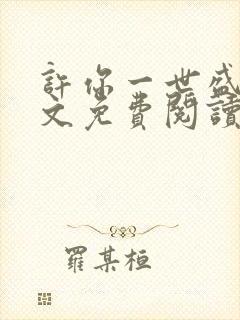 許你一世盛
文免費閱讀
羅某桓